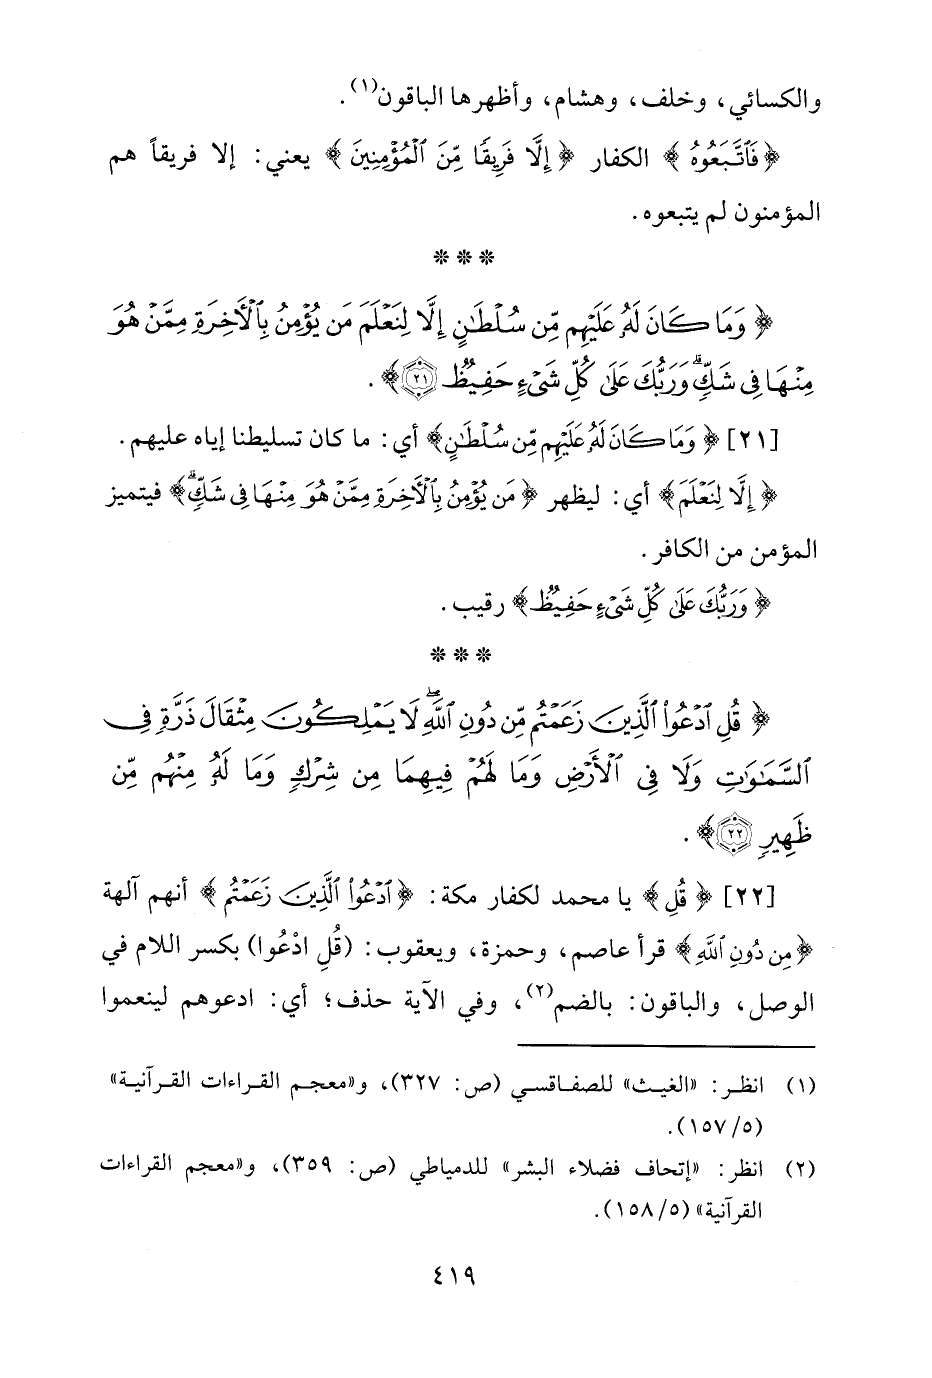 والكسائي، وخلف، وهشام، وأظهرها الباقون(١).
﴿فَٱتَّبَعُوهُ﴾ الكفار ﴿إِلَّا فَرِيقًا مِّنَ ٱلْمُؤْمِنِينَ﴾ يعني: إلا فريقاً هم
المؤمنون لم يتبعوه.
* * *
﴿وَمَا كَانَ لَهُۥ عَلَيْهِم مِّن سُلْطَٰنٍ إِلَّا لِنَعْلَمَ مَن يُؤْمِنُ بِٱلْأَخِرَةِ مِمَّنْ هُوَ
مِنْهَا فِى شَكٍّ ۗ وَرَبُّكَ عَلَىٰ كُلِّ شَىْءٍ حَفِيظٌ ٢١﴾.
[٢١] ﴿وَمَا كَانَ لَهُۥ عَلَيْهِم مِّن سُلْطَٰنٍ﴾ أي: ما كان تسليطنا إياه عليهم.
﴿إِلَّا لِنَعْلَمَ﴾ أي: ليظهر ﴿مَن يُؤْمِنُ بِٱلْأَخِرَةِ مِمَّنْ هُوَ مِنْهَا فِى شَكٍّ ۗ﴾ فيتميز
المؤمن من الكافر.
﴿وَرَبُّكَ عَلَىٰ كُلِّ شَىْءٍ حَفِيظٌ﴾ رقيب.
* * *
﴿قُلِ ٱدْعُوا۟ ٱلَّذِينَ زَعَمْتُم مِّن دُونِ ٱللَّهِ ۖ لَا يَمْلِكُونَ مِثْقَالَ ذَرَّةٍ فِى
ٱلسَّمَٰوَٰتِ وَلَا فِى ٱلْأَرْضِ وَمَا لَهُمْ فِيهِمَا مِن شِرْكٍ وَمَا لَهُۥ مِنْهُم مِّن
ظَهِيرٍ ٢٢﴾.
[٢٢] ﴿قُلِ﴾ يا محمد لكفار مكة: ﴿ٱدْعُوا۟ ٱلَّذِينَ زَعَمْتُم﴾ أنهم آلهة
﴿مِن دُونِ ٱللَّهِ﴾ قرأ عاصم، وحمزة، ويعقوب: (قُلِ ادْعُوا) بكسر اللام في
الوصل، والباقون: بالضم(٢)، وفي الآية حذف؛ أي: ادعوهم لينعموا
(١) انظر: «الغيث» للصفاقسي (ص: ٣٢٧)، و«معجم القراءات القرآنية»
(٥/ ١٥٧).
(٢) انظر: «إتحاف فضلاء البشر» للدمياطي (ص: ٣٥٩)، و«معجم القراءات
القرآنية» (٥/ ١٥٨).
٤١٩